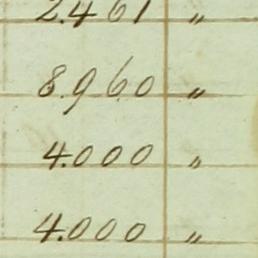 2.461 "
8.960 "
4.000 "
4.000 "